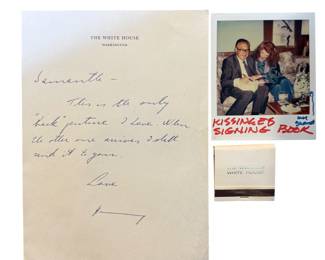 THE WHITE HOUSE
WASHINGTON
Samantha –
This is the only
"back" picture I have. When
the other one arrives I shall
send it to you.
Love
KISSINGER
SIGNING BOOK
WHITE HOUSE